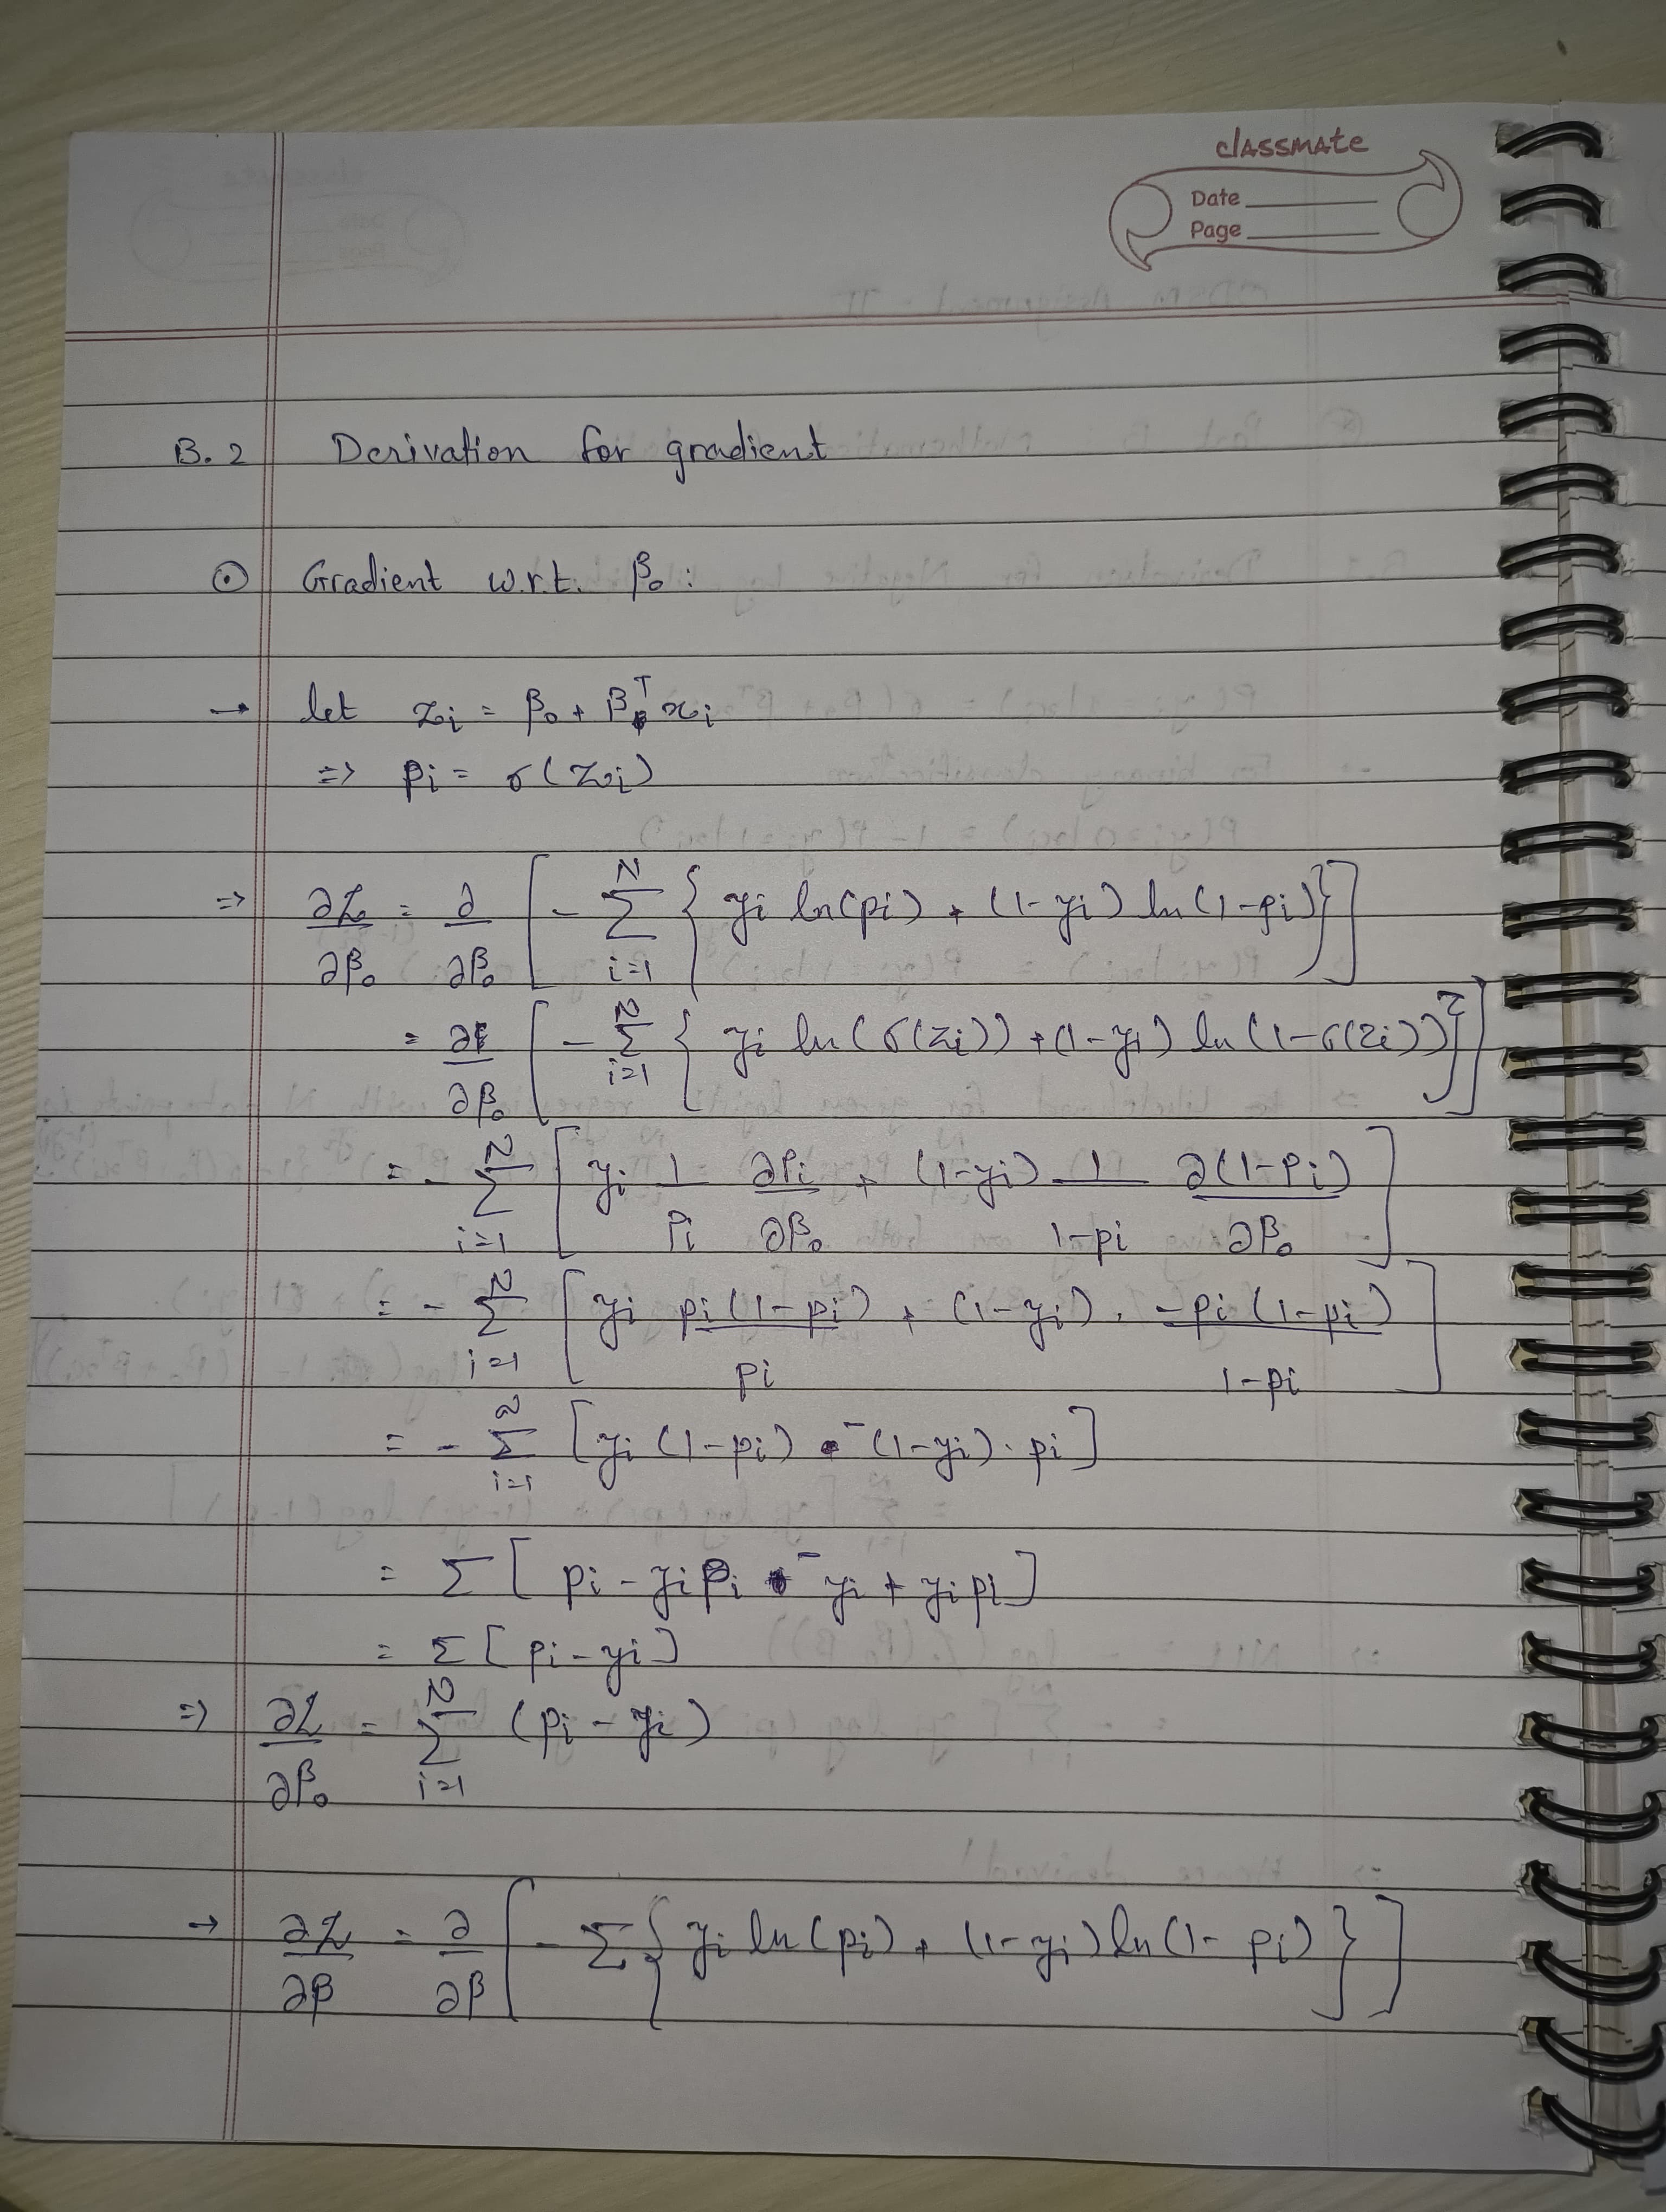 classmate
Date
Page
B.2 Derivation for gradient
⊙ Gradient w.r.t. β₀:
→ let zᵢ = β₀ + βᵀxᵢ
=> pᵢ = σ(zᵢ)
=> ∂L/∂β₀ = ∂/∂β₀ [ - Σ_{i=1}^{N} { yᵢ ln(pᵢ) + (1-yᵢ) ln(1-pᵢ) } ]
= ∂/∂β₀ [ - Σ_{i=1}^{N} { yᵢ ln(σ(zᵢ)) + (1-yᵢ) ln(1-σ(zᵢ)) } ]
= - Σ_{i=1}^{N} [ yᵢ 1/pᵢ ∂pᵢ/∂β₀ + (1-yᵢ) 1/(1-pᵢ) ∂(1-pᵢ)/∂β₀ ]
= - Σ_{i=1}^{N} [ yᵢ pᵢ(1-pᵢ)/pᵢ + (1-yᵢ) . -pᵢ(1-pᵢ)/(1-pᵢ) ]
= - Σ_{i=1}^{N} [ yᵢ (1-pᵢ) - (1-yᵢ) . pᵢ ]
= Σ [ pᵢ - yᵢpᵢ - yᵢ + yᵢpᵢ ]
= Σ [ pᵢ - yᵢ ]
=> ∂L/∂β₀ = Σ_{i=1}^{N} (pᵢ - yᵢ)
→ ∂L/∂β = ∂/∂β [ - Σ { yᵢ ln(pᵢ) + (1-yᵢ) ln(1-pᵢ) } ]